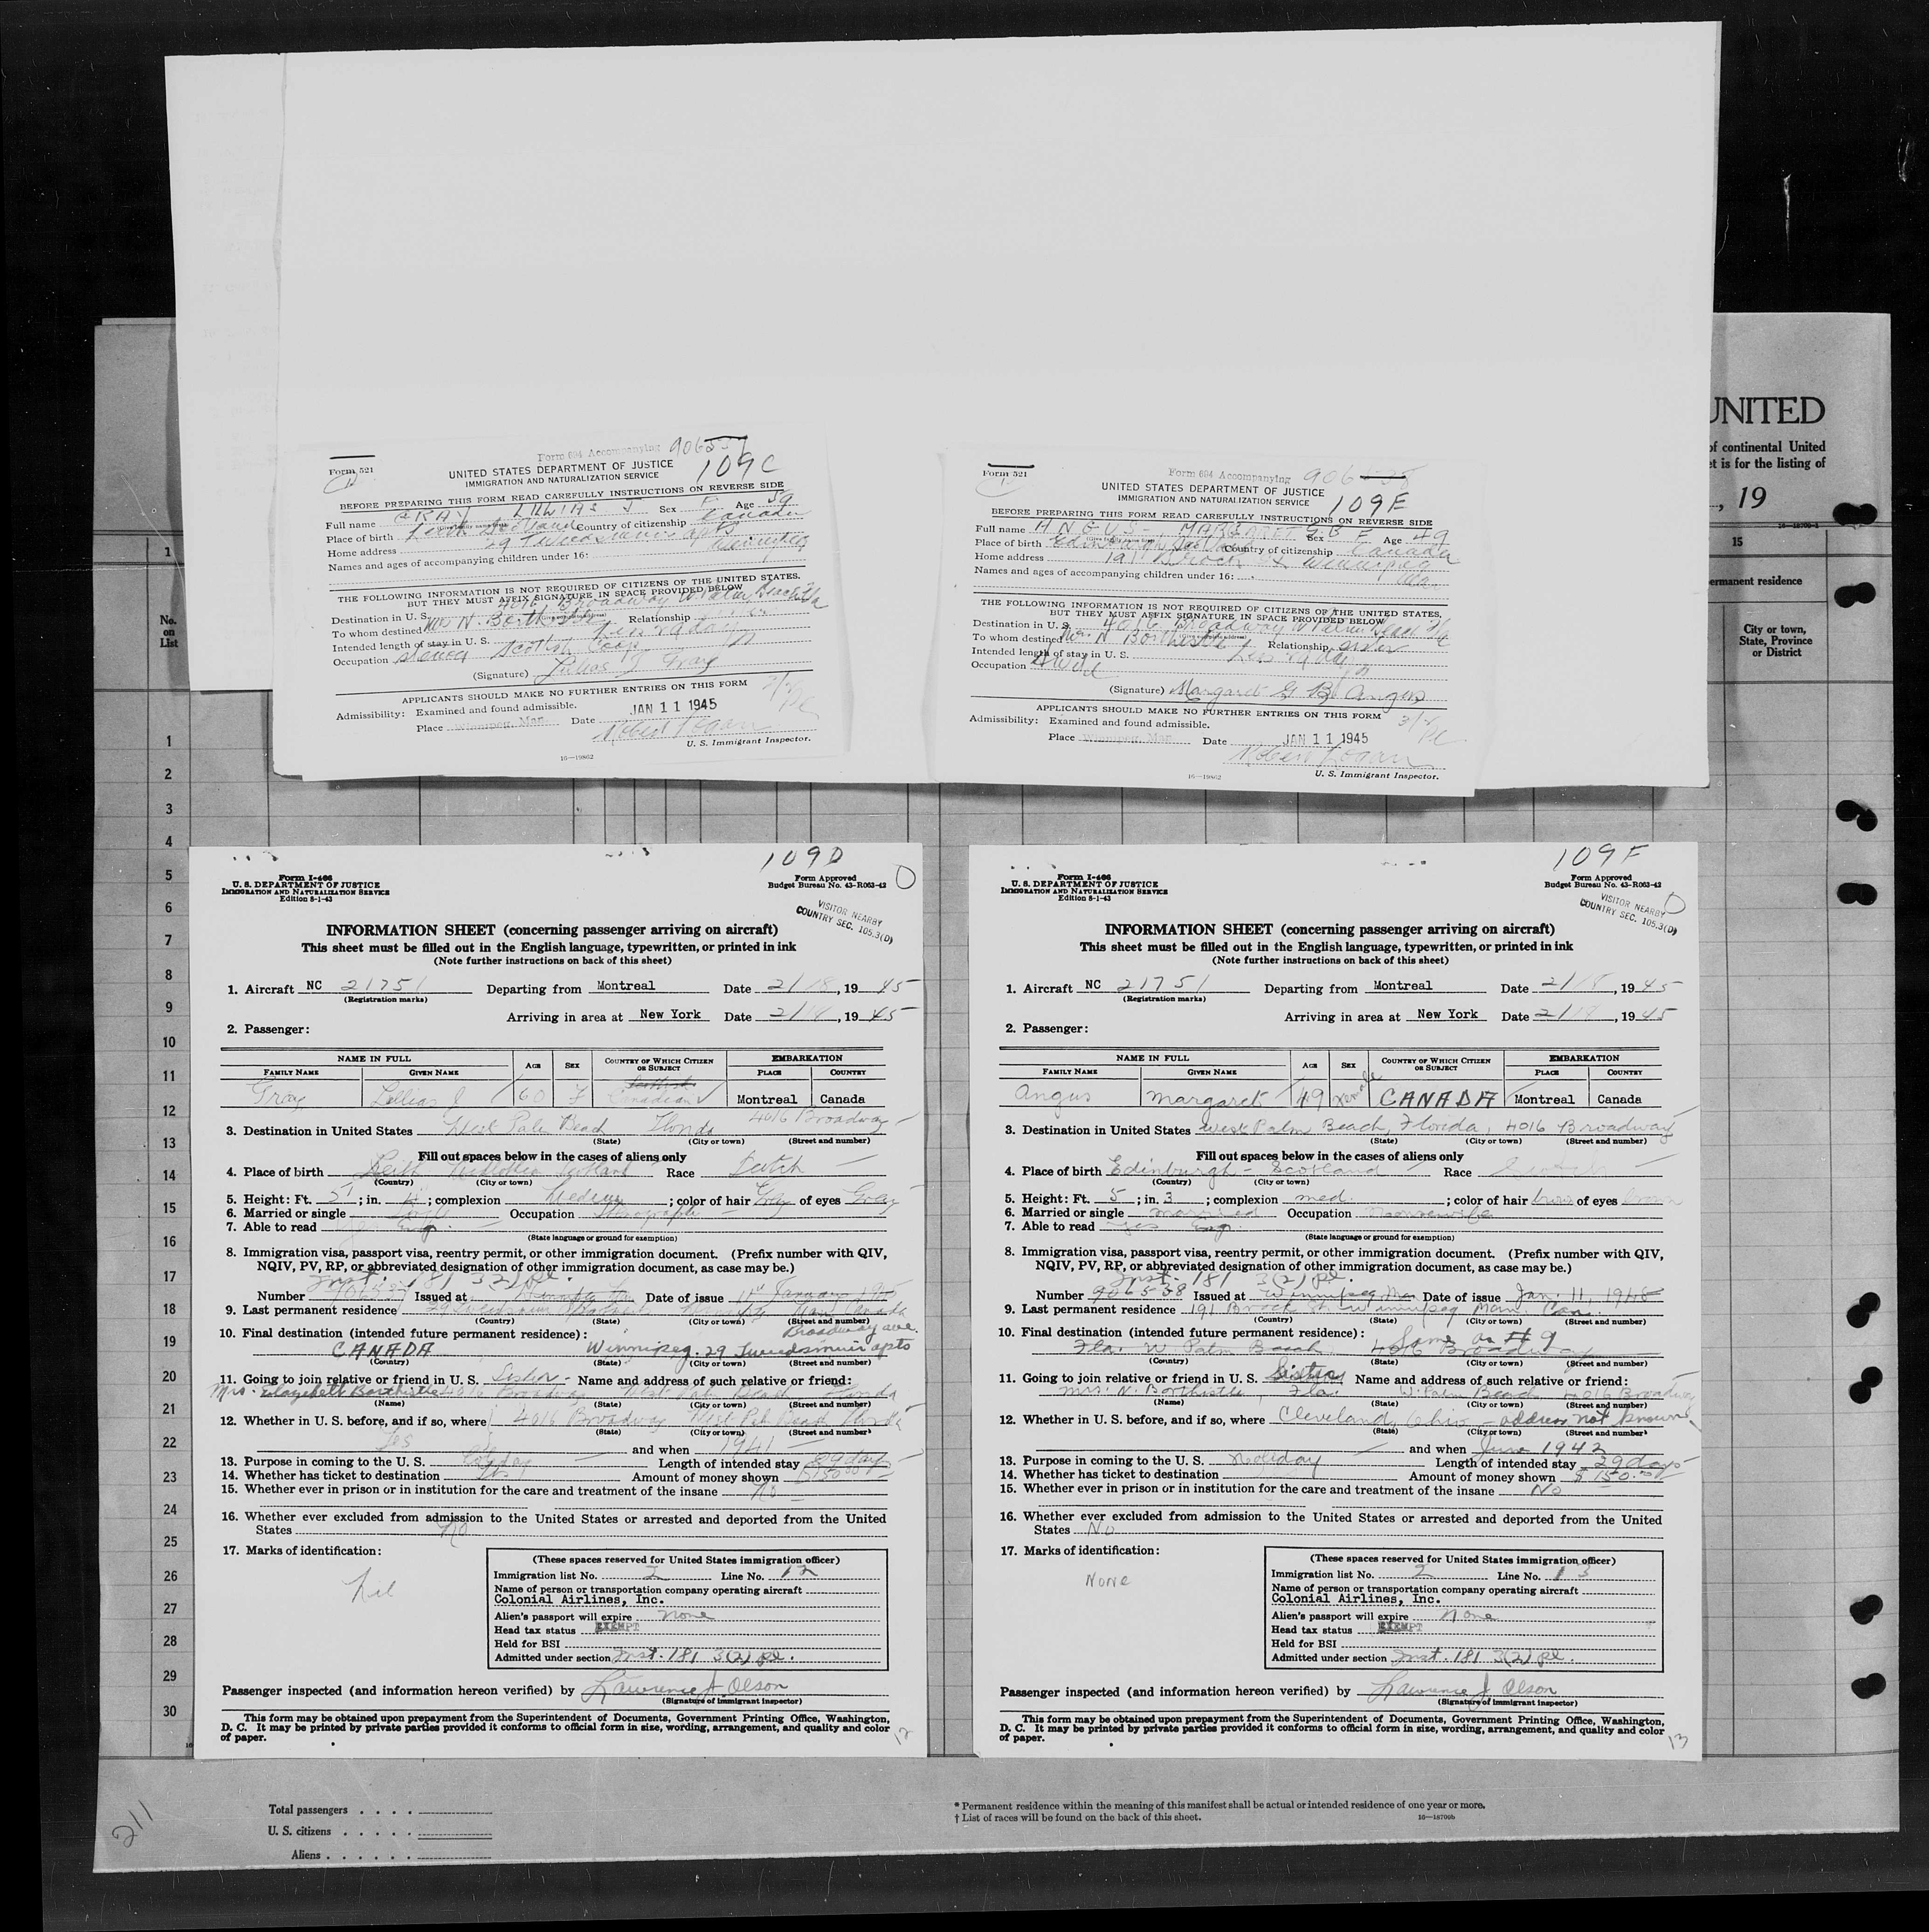 Form 694 Accompanying 906537
109C
Form 521
UNITED STATES DEPARTMENT OF JUSTICE
IMMIGRATION AND NATURALIZATION SERVICE
BEFORE PREPARING THIS FORM READ CAREFULLY INSTRUCTIONS ON REVERSE SIDE
Full name GRAY LILLIAS J Sex F Age 59
Place of birth Leith Scotland Country of citizenship Canada
Home address 29 Tweedsmuir apts Winnipeg
Names and ages of accompanying children under 16:
THE FOLLOWING INFORMATION IS NOT REQUIRED OF CITIZENS OF THE UNITED STATES,
BUT THEY MUST AFFIX SIGNATURE IN SPACE PROVIDED BELOW
Destination in U. S. 4016 Broadway W. Palm Beach Fla
To whom destined Mrs N. Borthistle Relationship sister
Intended length of stay in U. S. Less 29 days
Occupation steno Scottish Coop
(Signature) Lillias J. Gray
APPLICANTS SHOULD MAKE NO FURTHER ENTRIES ON THIS FORM
Admissibility: Examined and found admissible.
Place Winnipeg, Man. Date JAN 11 1945
Robert Logan
U. S. Immigrant Inspector.
16—19862
Form 694 Accompanying 906538
109E
Form 521
UNITED STATES DEPARTMENT OF JUSTICE
IMMIGRATION AND NATURALIZATION SERVICE
BEFORE PREPARING THIS FORM READ CAREFULLY INSTRUCTIONS ON REVERSE SIDE
Full name ANGUS - MARGARET G B Sex F Age 49
Place of birth Edinburgh Scotland Country of citizenship Canada
Home address 191 Brock St Winnipeg Man
Names and ages of accompanying children under 16:
THE FOLLOWING INFORMATION IS NOT REQUIRED OF CITIZENS OF THE UNITED STATES,
BUT THEY MUST AFFIX SIGNATURE IN SPACE PROVIDED BELOW
Destination in U. S. 4016 Broadway W Palm Beach Fla
To whom destined Mrs. N Borthistle Relationship sister
Intended length of stay in U. S. Less 29 days
Occupation H Wife
(Signature) Margaret G. B. Angus
APPLICANTS SHOULD MAKE NO FURTHER ENTRIES ON THIS FORM
Admissibility: Examined and found admissible.
Place Winnipeg, Man. Date JAN 11 1945
Robert Logan
U. S. Immigrant Inspector.
16—19862
UNITED
of continental United
et is for the listing of
, 19
15
ermanent residence
City or town,
State, Province
or District
No.
on
List
1
1
2
3
4
5
6
7
8
9
10
11
12
13
14
15
16
17
18
19
20
21
22
23
24
25
26
27
28
29
30
109D
Form I-466
U. S. DEPARTMENT OF JUSTICE
IMMIGRATION AND NATURALIZATION SERVICE
Edition 8-1-43
Form Approved
Budget Bureau No. 43-R063-42
VISITOR NEARBY
COUNTRY SEC. 105.3(D)
INFORMATION SHEET (concerning passenger arriving on aircraft)
This sheet must be filled out in the English language, typewritten, or printed in ink
(Note further instructions on back of this sheet)
1. Aircraft NC 21751 Departing from Montreal Date 2/18, 1945
(Registration marks)
Arriving in area at New York Date 2/18, 1945
2. Passenger:
NAME IN FULL AGE SEX COUNTRY OF WHICH CITIZEN OR SUBJECT EMBARKATION
FAMILY NAME GIVEN NAME PLACE COUNTRY
Gray Lillias J 60 F Canadian Montreal Canada
3. Destination in United States West Palm Beach Florida 4016 Broadway
(State) (City or town) (Street and number)
Fill out spaces below in the cases of aliens only
4. Place of birth Leith Midlothian Scotland Race Scotch
(Country) (City or town)
5. Height: Ft. 5; in. 4; complexion Medium; color of hair Gray of eyes Gray
6. Married or single Single Occupation Stenographer
7. Able to read Yes Eng.
(State language or ground for exemption)
8. Immigration visa, passport visa, reentry permit, or other immigration document. (Prefix number with QIV,
NQIV, PV, RP, or abbreviated designation of other immigration document, as case may be.)
Inst. 181 3(2) pl.
Number 906537 Issued at Winnipeg Man Date of issue 11th January 1945
9. Last permanent residence 29 Tweedsmuir Winnipeg Man Canada
(Country) (State) (City or town) (Street and number)
10. Final destination (intended future permanent residence): Broadway ave.
CANADA Winnipeg. 29 Tweedsmuir apts
(Country) (State) (City or town) (Street and number)
11. Going to join relative or friend in U. S. Sister - Name and address of such relative or friend:
Mrs. Elizabeth Borthistle 4016 Broadway West Palm Beach Florida
(Name) (State) (City or town) (Street and number)
12. Whether in U. S. before, and if so, where 4016 Broadway West Palm Beach Florida
(State) (City or town) (Street and number)
Yes and when 1941
13. Purpose in coming to the U. S. Holiday Length of intended stay 29 days
14. Whether has ticket to destination Yes Amount of money shown $150.00
15. Whether ever in prison or in institution for the care and treatment of the insane No
16. Whether ever excluded from admission to the United States or arrested and deported from the United
States No
17. Marks of identification:
Nil
(These spaces reserved for United States immigration officer)
Immigration list No. 2 Line No. 12
Name of person or transportation company operating aircraft
Colonial Airlines, Inc.
Alien's passport will expire none
Head tax status EXEMPT
Held for BSI
Admitted under section Inst. 181 3(2) pl.
Passenger inspected (and information hereon verified) by Lawrence J. Olson
(Signature of immigrant inspector)
This form may be obtained upon prepayment from the Superintendent of Documents, Government Printing Office, Washington,
D. C. It may be printed by private parties provided it conforms to official form in size, wording, arrangement, and quality and color
of paper.
12
109F
Form I-466
U. S. DEPARTMENT OF JUSTICE
IMMIGRATION AND NATURALIZATION SERVICE
Edition 8-1-43
Form Approved
Budget Bureau No. 43-R063-42
VISITOR NEARBY
COUNTRY SEC. 105.3(D)
INFORMATION SHEET (concerning passenger arriving on aircraft)
This sheet must be filled out in the English language, typewritten, or printed in ink
(Note further instructions on back of this sheet)
1. Aircraft NC 21751 Departing from Montreal Date 2/18, 1945
(Registration marks)
Arriving in area at New York Date 2/18, 1945
2. Passenger:
NAME IN FULL AGE SEX COUNTRY OF WHICH CITIZEN OR SUBJECT EMBARKATION
FAMILY NAME GIVEN NAME PLACE COUNTRY
Angus Margaret 49 Female CANADA Montreal Canada
3. Destination in United States West Palm Beach, Florida, 4016 Broadway
(State) (City or town) (Street and number)
Fill out spaces below in the cases of aliens only
4. Place of birth Edinburgh - Scotland Race Scotch
(Country) (City or town)
5. Height: Ft. 5; in. 3; complexion med.; color of hair brown of eyes brown
6. Married or single married Occupation Housewife
7. Able to read Yes Eng.
(State language or ground for exemption)
8. Immigration visa, passport visa, reentry permit, or other immigration document. (Prefix number with QIV,
NQIV, PV, RP, or abbreviated designation of other immigration document, as case may be.)
Inst. 181 3(2) pl.
Number 906538 Issued at Winnipeg Man Date of issue Jan. 11, 1945
9. Last permanent residence 191 Brock St. Winnipeg Man. Can.
(Country) (State) (City or town) (Street and number)
10. Final destination (intended future permanent residence): Same as # 9
Fla. W. Palm Beach 4016 Broadway
(Country) (State) (City or town) (Street and number)
11. Going to join relative or friend in U. S. Sister Name and address of such relative or friend:
Mrs. N. Borthistle, Fla. W. Palm Beach 4016 Broadway
(Name) (State) (City or town) (Street and number)
12. Whether in U. S. before, and if so, where Cleveland, Ohio - address not known
(State) (City or town) (Street and number)
and when June 1942
13. Purpose in coming to the U. S. Holiday Length of intended stay 29 days
14. Whether has ticket to destination Amount of money shown $150.00
15. Whether ever in prison or in institution for the care and treatment of the insane No
16. Whether ever excluded from admission to the United States or arrested and deported from the United
States No
17. Marks of identification:
None
(These spaces reserved for United States immigration officer)
Immigration list No. 2 Line No. 13
Name of person or transportation company operating aircraft
Colonial Airlines, Inc.
Alien's passport will expire None
Head tax status EXEMPT
Held for BSI
Admitted under section Inst. 181 3(2) pl.
Passenger inspected (and information hereon verified) by Lawrence J Olson
(Signature of immigrant inspector)
This form may be obtained upon prepayment from the Superintendent of Documents, Government Printing Office, Washington,
D. C. It may be printed by private parties provided it conforms to official form in size, wording, arrangement, and quality and color
of paper.
13
211
Total passengers . . . .
U. S. citizens . . . . .
Aliens . . . . . .
* Permanent residence within the meaning of this manifest shall be actual or intended residence of one year or more.
† List of races will be found on the back of this sheet.
16—18700b